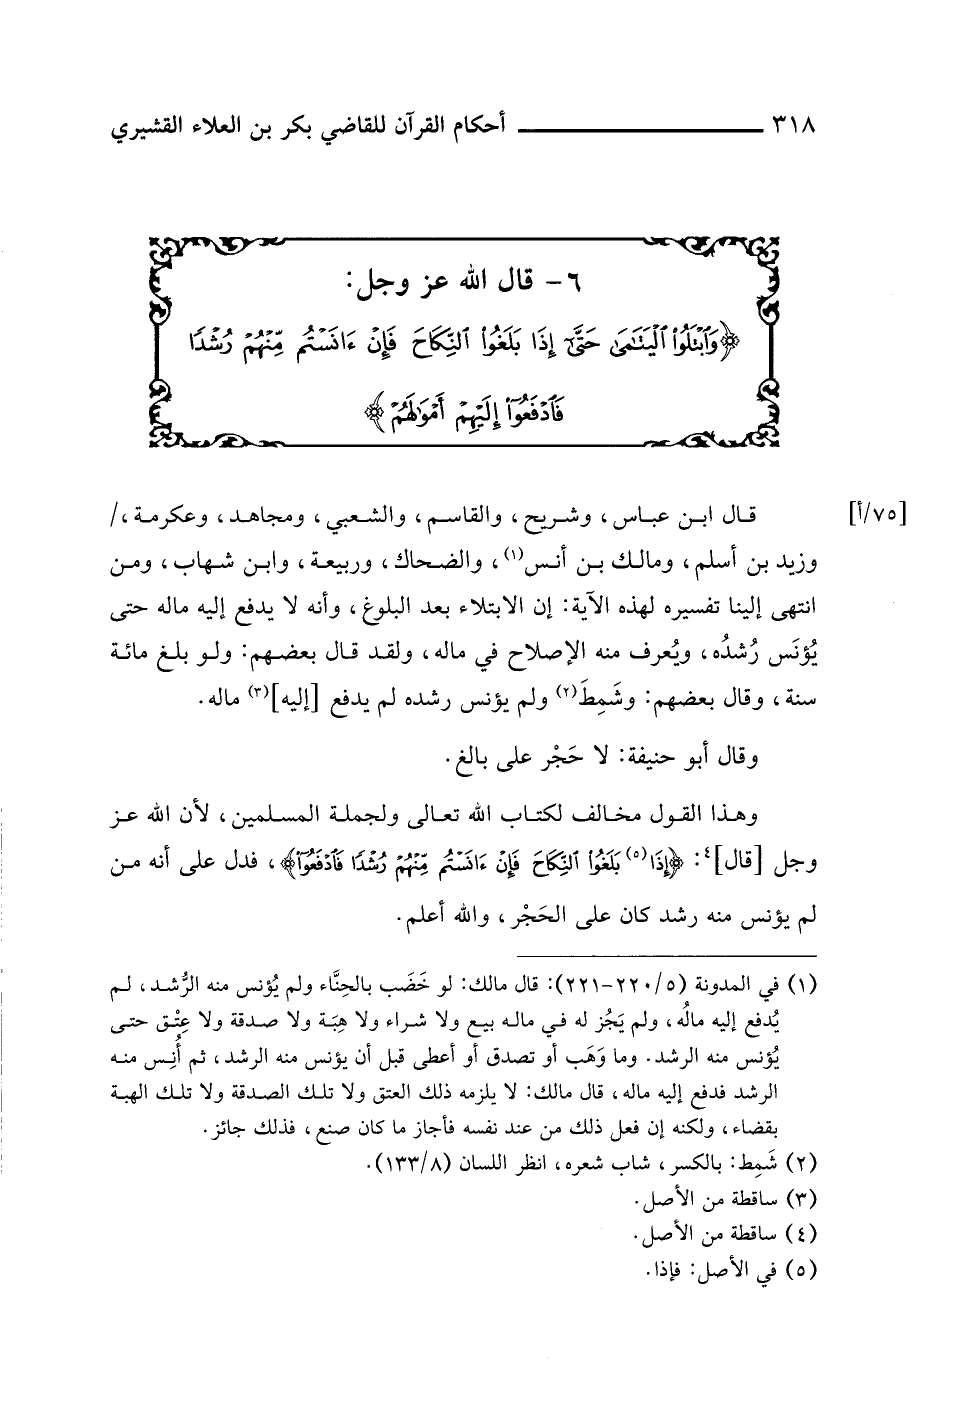 ٣١٨ ـــــــــــــ أحكام القرآن للقاضي بكر بن العلاء القشيري
٦ - قال الله عز وجل:
﴿وَٱبْتَلُوا۟ ٱلْيَتَـٰمَىٰ حَتَّىٰٓ إِذَا بَلَغُوا۟ ٱلنِّكَاحَ فَإِنْ ءَانَسْتُم مِّنْهُمْ رُشْدًا
فَٱدْفَعُوٓا۟ إِلَيْهِمْ أَمْوَٰلَهُمْ﴾
[٧٥/أ] قال ابن عباس، وشريح، والقاسم، والشعبي، ومجاهد، وعكرمة،/
وزيد بن أسلم، ومالك بن أنس(١)، والضحاك، وربيعة، وابن شهاب، ومن
انتهى إلينا تفسيره لهذه الآية: إن الابتلاء بعد البلوغ، وأنه لا يدفع إليه ماله حتى
يُؤنَس رُشدُه، ويُعرف منه الإصلاح في ماله، ولقد قال بعضهم: ولو بلغ مائة
سنة، وقال بعضهم: وشَمِطَ(٢) ولم يؤنس رشده لم يدفع [إليه](٣) ماله.
وقال أبو حنيفة: لا حَجْر على بالغ.
وهذا القول مخالف لكتاب الله تعالى ولجملة المسلمين، لأن الله عز
وجل [قال]٤: ﴿إِذَا(٥) بَلَغُوا۟ ٱلنِّكَاحَ فَإِنْ ءَانَسْتُم مِّنْهُمْ رُشْدًا فَٱدْفَعُوٓا۟﴾، فدل على أنه من
لم يؤنس منه رشد كان على الحَجْر، والله أعلم.
(١) في المدونة (٥/٢٢٠-٢٢١): قال مالك: لو خَضَب بالحِنَّاء ولم يُؤنس منه الرُّشد، لم
يُدفع إليه مالُه، ولم يَجُز له في ماله بيع ولا شراء ولا هِبَة ولا صدقة ولا عِتْق حتى
يُؤنس منه الرشد. وما وَهَب أو تصدق أو أعطى قبل أن يؤنس منه الرشد، ثم أُنِس منه
الرشد فدفع إليه ماله، قال مالك: لا يلزمه ذلك العتق ولا تلك الصدقة ولا تلك الهبة
بقضاء، ولكنه إن فعل ذلك من عند نفسه فأجاز ما كان صنع، فذلك جائز.
(٢) شَمِط: بالكسر، شاب شعره، انظر اللسان (٨/١٣٣).
(٣) ساقطة من الأصل.
(٤) ساقطة من الأصل.
(٥) في الأصل: فإذا.